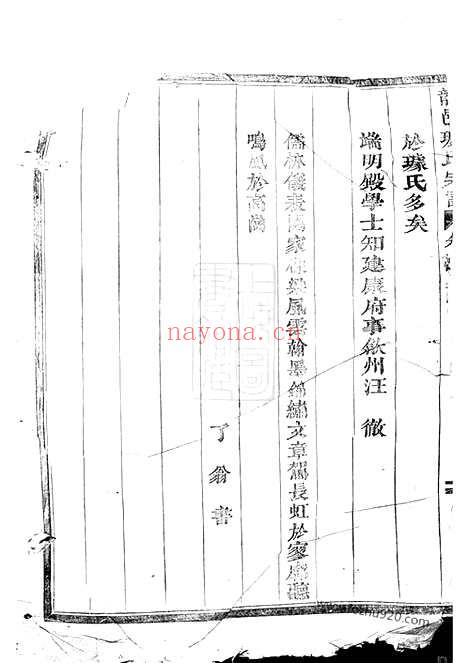 於璩氏多矣
端明殿學士知建康府事歙州汪 徹
儒林儀表國家 風雲翰墨錦繡文章駕長虹於寥廓聽
鳴鳳於高岡
了翁書
nayona.cn